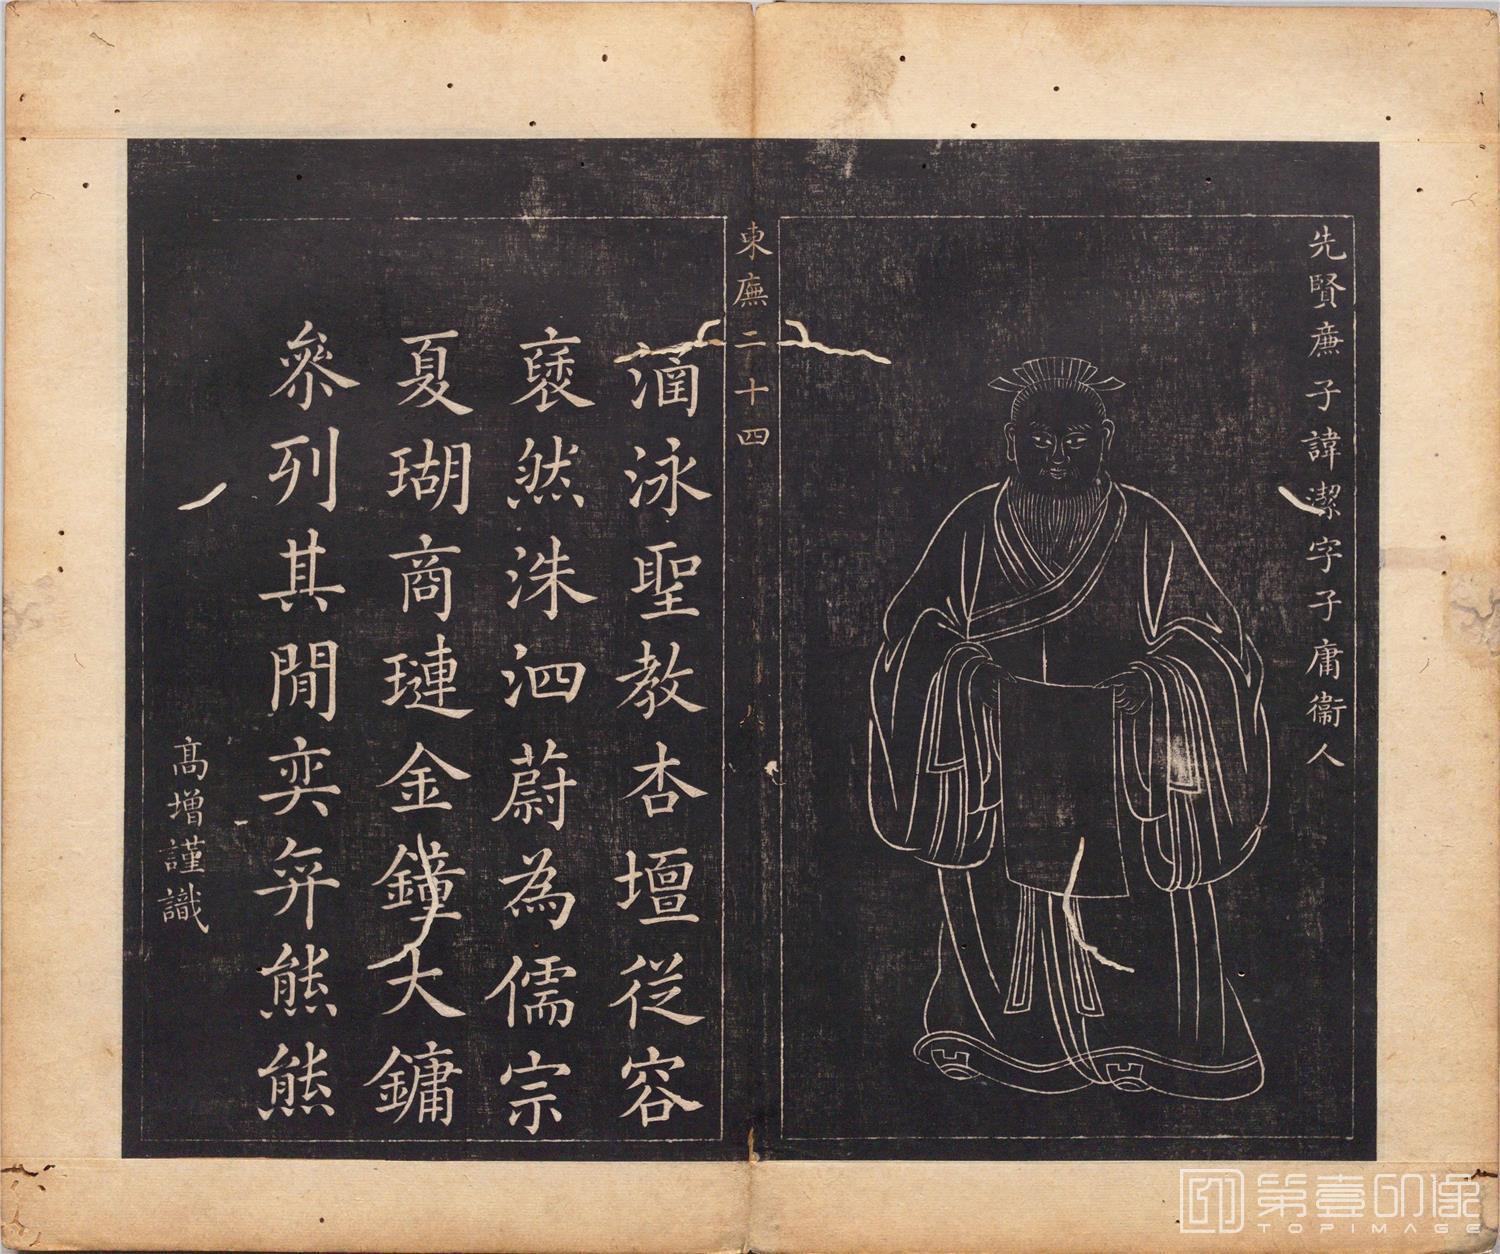 先賢亷子諱潔字子庸衞人
東廡二十四
八
涵泳聖教杏壇從容
褎然洙泗蔚為儒宗
夏瑚商璉金鐘大鏞
叅列其閒奕弈熊熊
高增謹識
第壹印像
TOPIMAGE